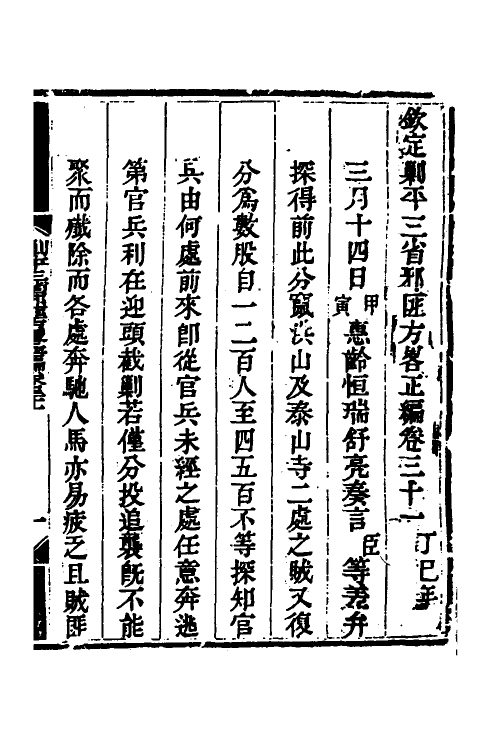 欽定剿平三省邪匪方畧正編卷三十一 丁巳年
三月十四日甲寅惠齡恒瑞舒亮奏言臣等差弁
探得前此分竄洪山及泰山寺二處之賊又復
分爲數股自一二百人至四五百不等探知官
兵由何處前來卽從官兵未經之處任意奔逃
第官兵利在迎頭截剿若僅分投追襲旣不能
聚而殲除而各處奔馳人馬亦易疲乏且賊匪